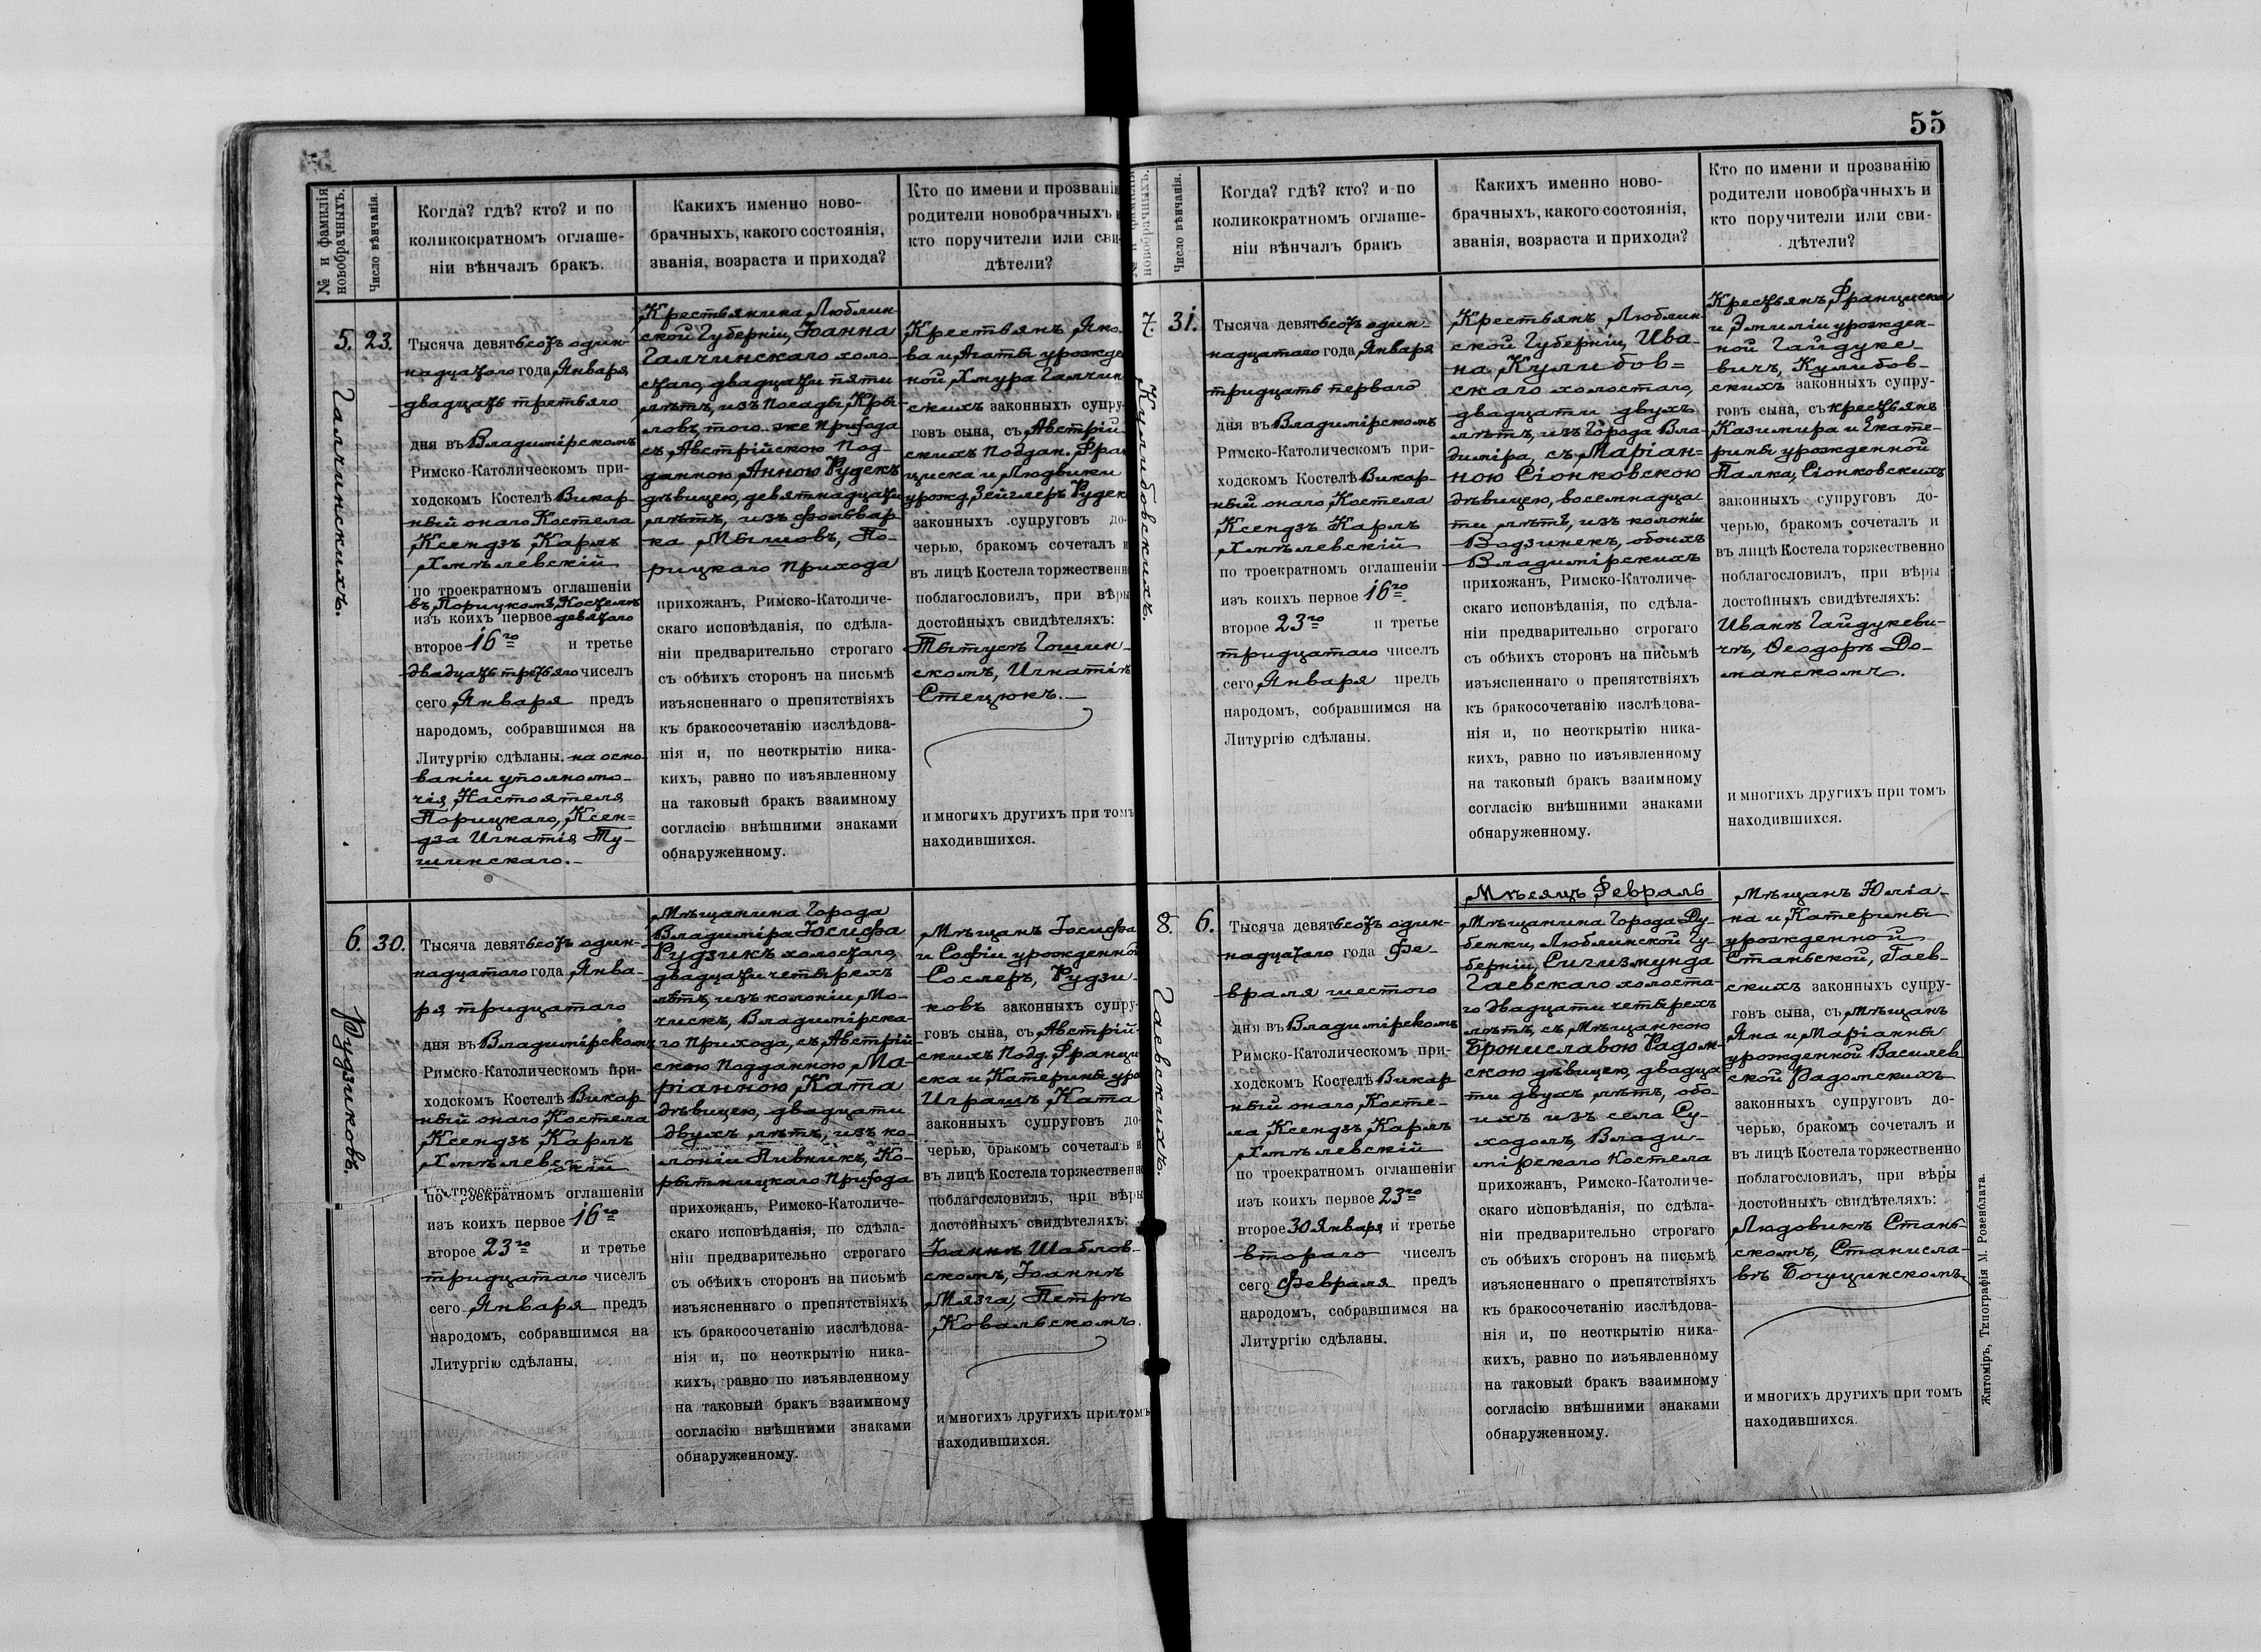 № и фамилія новобрачныхъ.
Число вѣнчанія.
Когда? гдѣ? кто? и по
коликократномъ оглаше-
ніи вѣнчалъ бракъ.
Какихъ именно ново-
брачныхъ, какого состоянія,
званія, возраста и прихода?
Кто по имени и прозванію
родители новобрачныхъ и
кто поручители или сви-
дѣтели?
5.
Галчинскихъ.
23.
Тысяча девятьсотъ один-
надцатаго года Января
двадцать третьяго
дня въ Владимірскомъ
Римско-Католическомъ при-
ходскомъ Костелѣ Викар-
ный онаго Костела
Ксендзъ Карлъ
Хмѣлевскій
по троекратномъ оглашеніи
въ Порицкомъ Костелѣ
изъ коихъ первое девятаго
второе 16го и третье
двадцать третьяго чиселъ
сего Января предъ
народомъ, собравшимся на
Литургію сдѣланы. на осно-
ваніи уполномо-
чія Настоятеля
Порицкаго, Ксен-
дза Игнатія Ту-
шинскаго.
Крестьянина Люблин-
ской Губерніи, Іоанна
Галчинскаго холо-
стаго, двадцати пяти
лѣтъ, изъ посады Кры-
ловъ того-же прихода
съ Австрійскою Под-
данною Анною Рудекъ
дѣвицею, девятнадцати
лѣтъ, изъ фольвар-
ка Мышовъ, По-
рицкаго прихода
прихожанъ, Римско-Католиче-
скаго исповѣданія, по сдѣла-
ніи предварительно строгаго
съ обѣихъ сторонъ на письмѣ
изъясненнаго о препятствіяхъ
къ бракосочетанію изслѣдова-
нія и, по неоткрытію ника-
кихъ, равно по изъявленному
на таковый бракъ взаимному
согласію внѣшними знаками
обнаруженному.
Крестьянъ Яко-
ва и Агаты урожде
ной Хмура Галчин
скихъ законныхъ супру-
говъ сына, съ Австрій-
скихъ Поддан. Фран
циска и Людвики
урожд. Зейглеръ Рудек
законныхъ супруговъ до-
черью, бракомъ сочеталъ и
въ лицѣ Костела торжественно
поблагословилъ, при вѣры
достойныхъ свидѣтеляхъ:
Тытусъ Гошин-
скомъ, Игнатіѣ
Стецюкъ.
и многихъ другихъ при томъ
находившихся.
6.
Рудзиковъ.
30.
Тысяча девятьсотъ один-
надцатаго года Янва-
ря тридцатаго
дня въ Владимірскомъ
Римско-Католическомъ при-
ходскомъ Костелѣ Викар-
ный онаго Костела
Ксендзъ Карлъ
Хмѣлевскій
по троекратномъ оглашеніи
изъ коихъ первое 16го
второе 23го и третье
тридцатаго чиселъ
сего Января предъ
народомъ, собравшимся на
Литургію сдѣланы.
Мѣщанина Города
Владиміра Іосифа
Рудзикъ холостаго,
двадцати четырехъ
лѣтъ, изъ колоніи Мо-
чискъ, Владимірска-
го прихода, съ Австрій-
скою Подданною Ма-
ріанною Ката
дѣвицею, двадцати
двухъ лѣтъ, изъ ко-
лоніи Пивникъ, Ко-
рытницкаго прихода
прихожанъ, Римско-Католиче-
скаго исповѣданія, по сдѣла-
ніи предварительно строгаго
съ обѣихъ сторонъ на письмѣ
изъясненнаго о препятствіяхъ
къ бракосочетанію изслѣдова-
нія и, по неоткрытію ника-
кихъ, равно по изъявленному
на таковый бракъ взаимному
согласію внѣшними знаками
обнаруженному.
Мѣщанъ Іосифа
и Софіи урожденной
Сослеръ, Рудзи-
ковъ законныхъ супру-
говъ сына, съ Австрій-
скихъ Подд. Францы-
ска и Катерины уро
Играшъ Ката
законныхъ супруговъ до-
черью, бракомъ сочеталъ и
въ лицѣ Костела торжественно
поблагословилъ, при вѣры
достойныхъ свидѣтеляхъ:
Іоаннъ Шаблов-
скомъ, Іоаннъ
Мязга, Петръ
Ковальскомъ.
и многихъ другихъ при томъ
находившихся.
55
новобрачныхъ.
Число вѣнчанія.
Когда? гдѣ? кто? и по
коликократномъ оглаше-
ніи вѣнчалъ бракъ
Какихъ именно ново-
брачныхъ, какого состоянія,
званія, возраста и прихода?
Кто по имени и прозванію
родители новобрачныхъ и
кто поручители или сви-
дѣтели?
7.
Кулибовскихъ.
31.
Тысяча девятьсотъ один-
надцатаго года Января
тридцать перваго
дня въ Владимірскомъ
Римско-Католическомъ при-
ходскомъ Костелѣ Викар-
ный онаго Костела
Ксендзъ Карлъ
Хмѣлевскій
по троекратномъ оглашеніи
изъ коихъ первое 16го
второе 23го и третье
тридцатаго чиселъ
сего Января предъ
народомъ, собравшимся на
Литургію сдѣланы.
Крестьянъ Люблин
ской Губерніи, Ива-
на Кулибов=
скаго холостаго,
двадцати двухъ
лѣтъ, изъ Города Вла-
диміра, съ Маріан=
ною Сіонковскою
дѣвицею, восемнадца
ти лѣтъ, изъ колоніи
Водзинекъ, обоихъ
Владимірскихъ
прихожанъ, Римско-Католиче-
скаго исповѣданія, по сдѣла-
ніи предварительно строгаго
съ обѣихъ сторонъ на письмѣ
изъясненнаго о препятствіяхъ
къ бракосочетанію изслѣдова-
нія и, по неоткрытію ника-
кихъ, равно по изъявленному
на таковый бракъ взаимному
согласію внѣшними знаками
обнаруженному.
Крестьянъ Франциска
и Эмиліи урожден-
ной Гайдуке-
вичъ, Кулибов-
скихъ законныхъ супру-
говъ сына, съ крестьянъ
Казимира и Екате-
рины урожденной
Палка, Сіонковскихъ
законныхъ супруговъ до-
черью, бракомъ сочеталъ и
въ лицѣ Костела торжественно
поблагословилъ, при вѣры
достойныхъ свидѣтеляхъ:
Иванъ Гайдукеви-
чъ, Ѳеодоръ До-
манскомъ.
и многихъ другихъ при томъ
находившихся.
8.
Гаевскихъ.
6.
Тысяча девятьсотъ один-
надцатаго года Фе-
враля шестого
дня въ Владимірскомъ
Римско-Католическомъ при-
ходскомъ Костелѣ Викар
ный онаго Косте-
ла Ксендзъ Карлъ
Хмѣлевскій
по троекратномъ оглашеніи
изъ коихъ первое 23го
второе 30 Января и третье
втораго чиселъ
сего Февраля предъ
народомъ, собравшимся на
Литургію сдѣланы.
Мѣсяцъ Февраль
Мѣщанина Города Ду-
бенки, Люблинской Гу-
берніи, Сигизмунда
Гаевскаго холоста-
го двадцати четырехъ
лѣтъ, съ Мѣщанкою
Брониславою Радом-
скою дѣвицею, двадца
ти двухъ лѣтъ, обо-
ихъ изъ села Су-
ходолъ, Влади-
мірскаго Костела
прихожанъ, Римско-Католиче-
скаго исповѣданія, по сдѣла-
ніи предварительно строгаго
съ обѣихъ сторонъ на письмѣ
изъясненнаго о препятствіяхъ
къ бракосочетанію изслѣдова-
нія и, по неоткрытію ника-
кихъ, равно по изъявленному
на таковый бракъ взаимному
согласію внѣшними знаками
обнаруженному.
Мѣщанъ Юліа-
на и Катерины
урожденной
Станьской, Гаев-
скихъ законныхъ супру-
говъ сына, съ мѣщанъ
Яна и Маріанны
урожденной Василев
ской Радомскихъ
законныхъ супруговъ до-
черью, бракомъ сочеталъ и
въ лицѣ Костела торжественно
поблагословилъ, при вѣры
достойныхъ свидѣтеляхъ:
Людовикъ Стань-
скомъ, Станисла-
въ Бощинскомъ
и многихъ другихъ при томъ
находившихся.
Житоміръ, Типографія М. Розенблата.